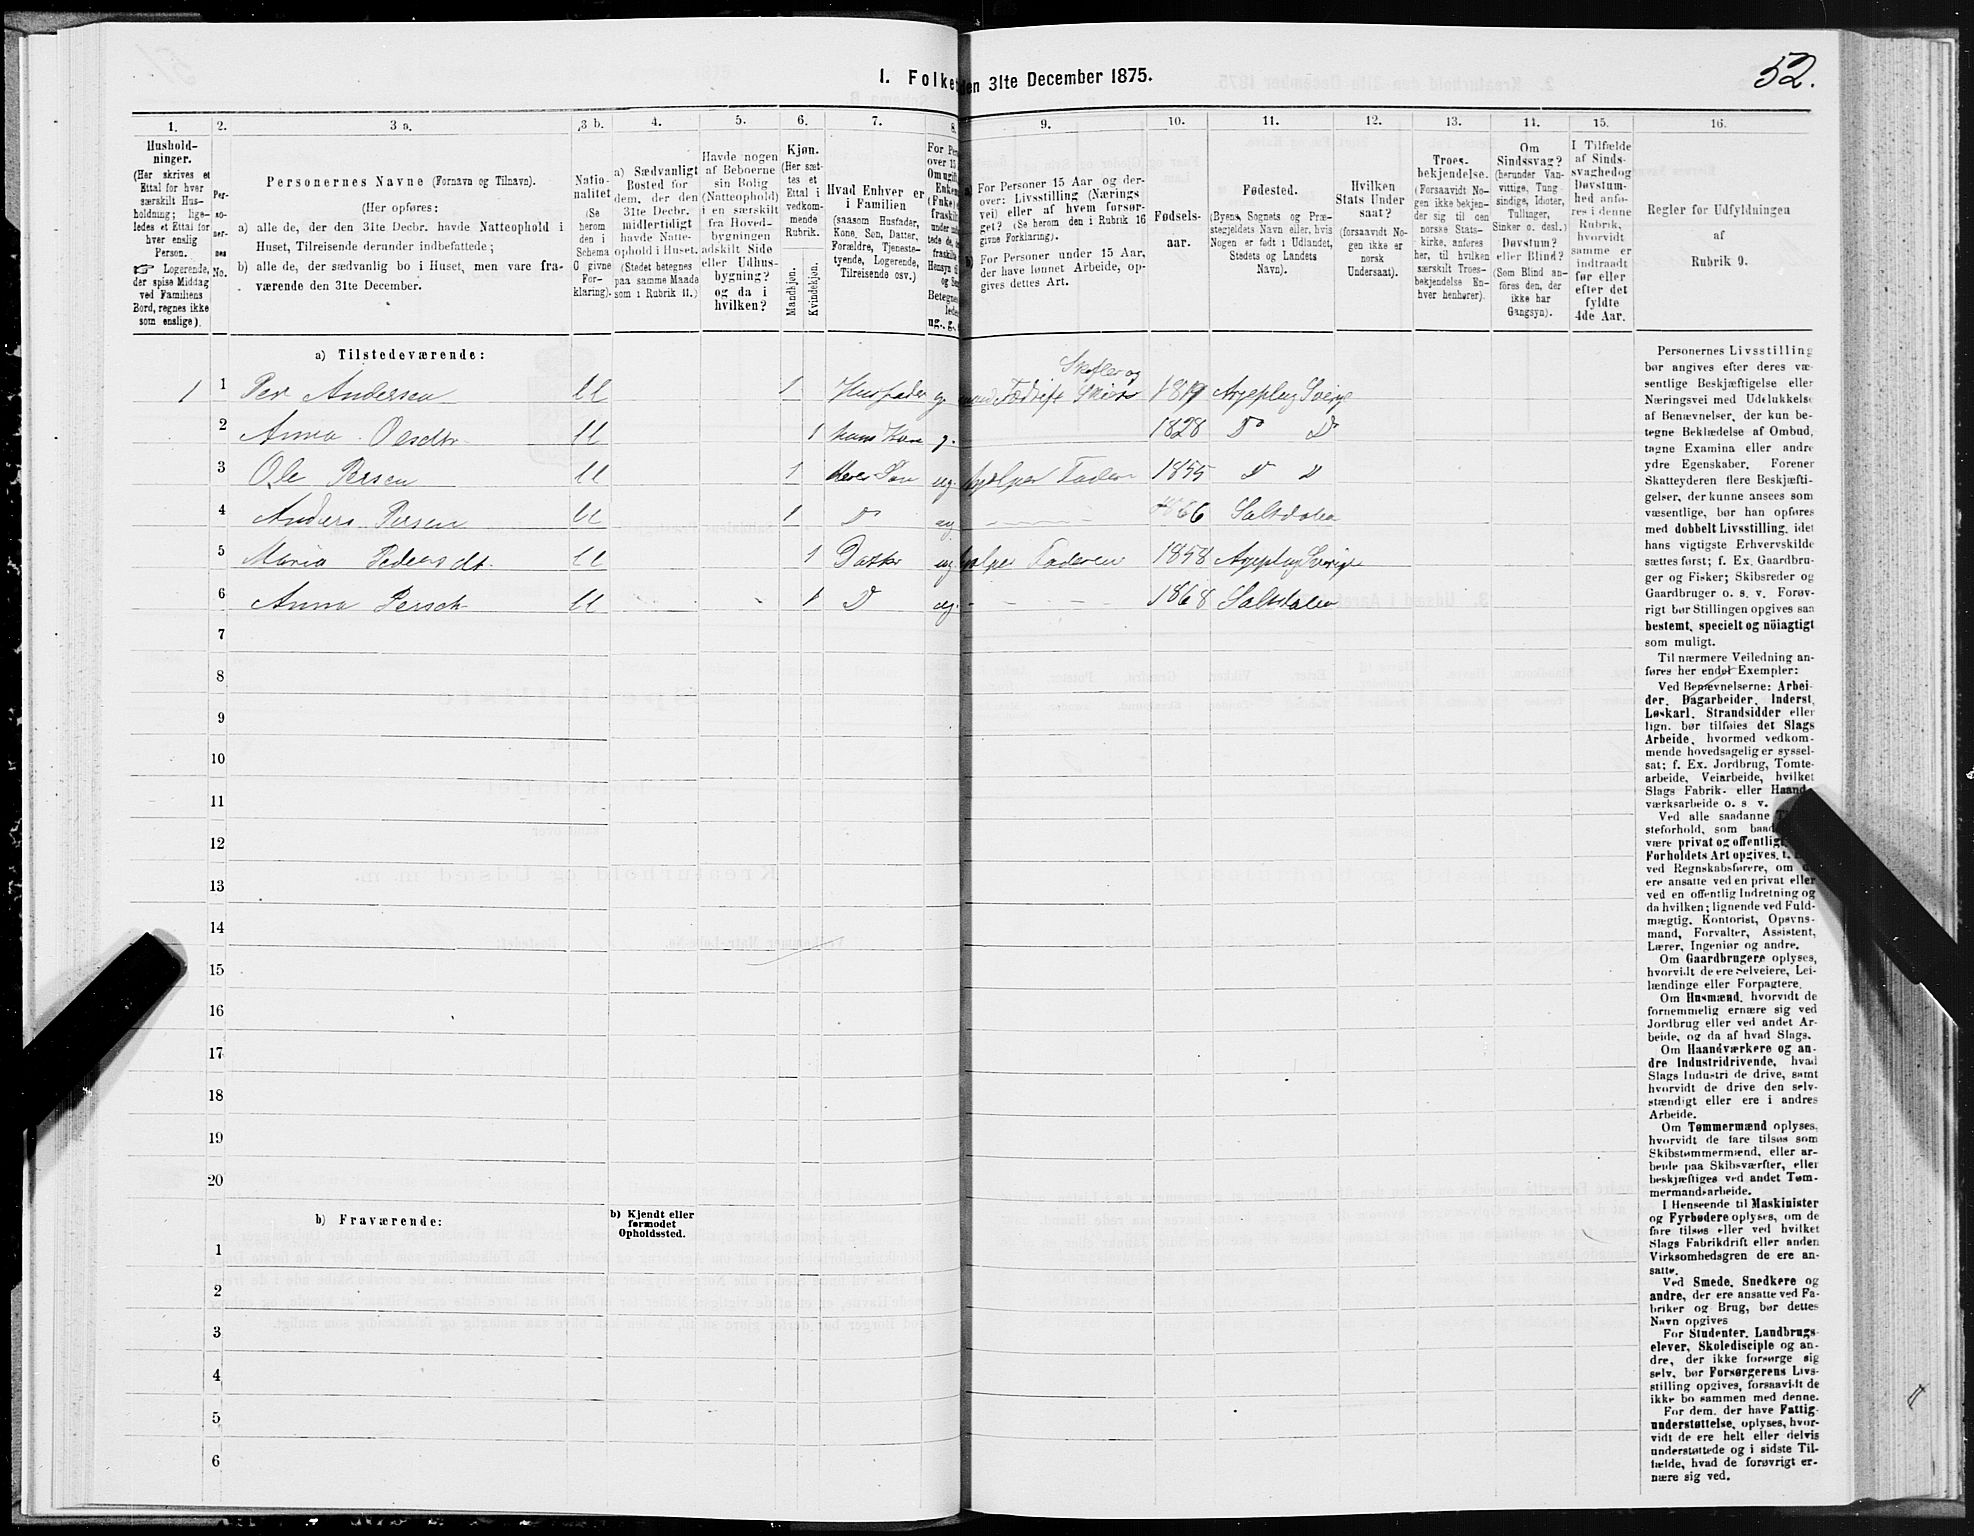 52.
1. Folket
den 31te December 1875.
1.
2.
3 a.
3 b.
4.
5.
6.
7.
8.
9.
10.
11.
12.
13.
14.
15.
16.
Hushold-
ninger.
(Her skrives et
Ettal for hver
særskilt Hus-
holdning; lige-
ledes et Ettal for
hver enslig
Person.
☞ Logerende,
der spise Middag
ved Familiens
Bord, regnes ikke
som enslige).
Per-
so-
ner-
nes
No.
Personernes Navne (Fornavn og Tilnavn).
(Her opføres:
a) alle de, der den 31te Decbr. havde Natteophold i
Huset, Tilreisende derunder indbefattede;
b) alle de, der sædvanlig bo i Huset, men vare fra-
værende den 31te December.
Natio-
nalitet
(Se
herom
den i
Schema
G givne
For-
klaring).
a) Sædvanligt
Bosted for
dem, der den
31te Decbr.
midlertidigt
havde Natte-
ophold i Huset.
(Stedet betegnes
paa samme Maade
som i Rubrik 11.)
Havde nogen
af Beboerne
sin Bolig
(Natteophold)
i en særskilt
fra Hoved-
bygningen
adskilt Side
eller Udhus-
bygning?
og da i
hvilken?
Kjøn.
(Her sæt-
tes et
Ettal i
vedkom-
mende
Rubrik.
Mandkjøn.
Kvindekjøn.
Hvad Enhver er
i Familien
(saasom Husfader,
Kone, Søn, Datter,
Forældre, Tjeneste-
tyende, Logerende,
Tilreisende osv.)
For Per
over 15
Om ugift
Enkem
(Fnke) e
fraskilt
under
tede de,
fraskilte
Hensyn ti
og Se
Betegnes
lede
ug., g.,
a) For Personer 15 Aar og der-
over: Livsstilling (Nærings
vei) eller af hvem forsør-
get? (Se herom den i Rubrik 16
givne Forklaring).
b) For Personer under 15 Aar,
der have lønnet Arbeide, op-
gives dettes Art.
Fødsels-
aar.
Fødested.
(Byens, Sognets og Præ-
stegjeldets Navn eller, hvis
Nogen er født i Udlandet,
Stedets og Landets
Navn).
Hvilken
Stats Under
saat?
(forsaavidt No-
gen ikke er
norsk
Undersaat).
Troes-
bekjendelse.
(Forsaavidt No-
gen ikke bekjen-
der sig til den
norske Stats-
kirke, anføres
her, til hvilken
særskilt Troes-
bekjendelse En-
hver henhører).
Om
Sindssvag?
(herunder Van-
vittige, Tung-
sindige, Idioter,
Tullinger,
Sinker o. desl.)
Døvstum?
eller Blind?
(Som Blind an-
føres den, der
ikke har
Gangsyn).
I Tilfælde
af Sinds-
svaghed og
Døvstum-
hed anfø-
res i denne
Rubrik,
hvorvidt
samme er
indtraadt
før eller
efter det
fyldte
4de Aar.
Regler for Udfyldningen
af
Rubrik 9.
a) Tilstedeværende:
1 1 Per Andersen 1 Husfader g. Fædrift Skafler og 1819 Arjeplug Sverige
2 Anna 1 hans Kone g. 1828 Do Do
3 Ole Persen 1 deres Søn ug. hjælper Faderen 1855 D D
4 Anders Persen 1 Do ug 1866 Saltdalen
5 Maria Pedersdt. 1 Datter ug hjælper Faderen 1858 Arjeplug Sverige
6 Anna Persdt 1 D ug. 1868 Saltdalen
7
8
9
10
11
12
13
14
15
16
17
18
19
20
b) Fraværende:
b) Kjendt eller
formodet
Opholdssted.
1
2
3
4
5
6
Personernes Livsstilling
bør angives efter deres væ-
sentlige Beskjæftigelse eller
Næringsvei med Udelukkelse
af Benævnelser, der kun be-
tegne Beklædelse af Ombud,
tagne Examina eller andre
ydre Egenskaber. Forener
Skatteyderen flere Beskjæfti-
gelser, der kunne ansees som
væsentlige, bør han opføres
med dobbelt Livsstilling, idet
hans vigtigste Erhvervskilde
sættes først; f. Ex. Gaardbru-
ger og Fisker; Skibsreder og
Gaardbruger o. s. v. Forøv-
rigt bør Stillingen opgives saa
bestemt, specielt og nöiagtigt
som muligt.
Til nærmere Veiledning an-
føres her endel Exempler:
Ved Benævnelserne: Arbei-
der, Dagarbeider, Inderst,
Løskarl, Strandsidder eller
lign. bør tilføies det Slags
Arbeide, hvormed vedkom-
mende hovedsagelig er syssel-
sat; f. Ex. Jordbrug, Tomte-
arbeide, Veiarbeide, hvilket
Slags Fabrik- eller Haand-
værksarbeide o. s v.
Ved alle saadanne
steforhold, som baade
være privat og offentligt,
Forholdets Art opgives, t.
ved Regnskabsførere, om
ere ansatte ved en privat eller
ved en offentlig Indretning og
da hvilken; lignende ved Fuld-
mægtig, Kontorist, Opsyns-
mand, Forvalter, Assistent,
Lærer, Ingeniør og andre.
Om Gaardbrugere oplyses,
hvorvidt de ere Selveiere, Lei-
lændinge eller Forpagtere.
Om Husmænd, hvorvidt de
fornemmelig ernære sig ved
Jordbrug eller ved andet Ar-
beide, og da af hvad Slags.
Om Haandværkere og an-
dre Industridrivende, hvad
Slags Industri de drive, samt
hvorvidt de drive den selv-
stændigt eller ere i andres
Arbeide.
Om Tømmermænd oplyses,
hvorvidt de fare tilsøs som
Skibstømmermænd, eller ar-
beide paa Skibsværfter, eller
beskjæftiges ved andet Tøm-
mermandsarbeide.
I Henseende til Maskinister
og Fyrbødere oplyses, om de
fare tilsøs eller ved hvilket
Slags Fabrikdrift eller anden
Virksomhedsgren de ere an-
satte.
Ved Smede, Snedkere og
andre, der ere ansatte ved Fa-
briker og Brug, bør dettes
Navn opgives
For Studenter, Landbrugs
elever, Skoledisciple og an-
dre, der ikke forsørge sig
selv, bør Forsørgerens Livs-
stilling opgives, forsaavidt de
ikke bo sammen med denne.
For dem, der have Fattig-
understøttelse, oplyses, hvor-
vidt de ere helt eller delvis
understøttede og i sidste Til-
fælde, hvad de forøvrigt er-
nære sig ved.